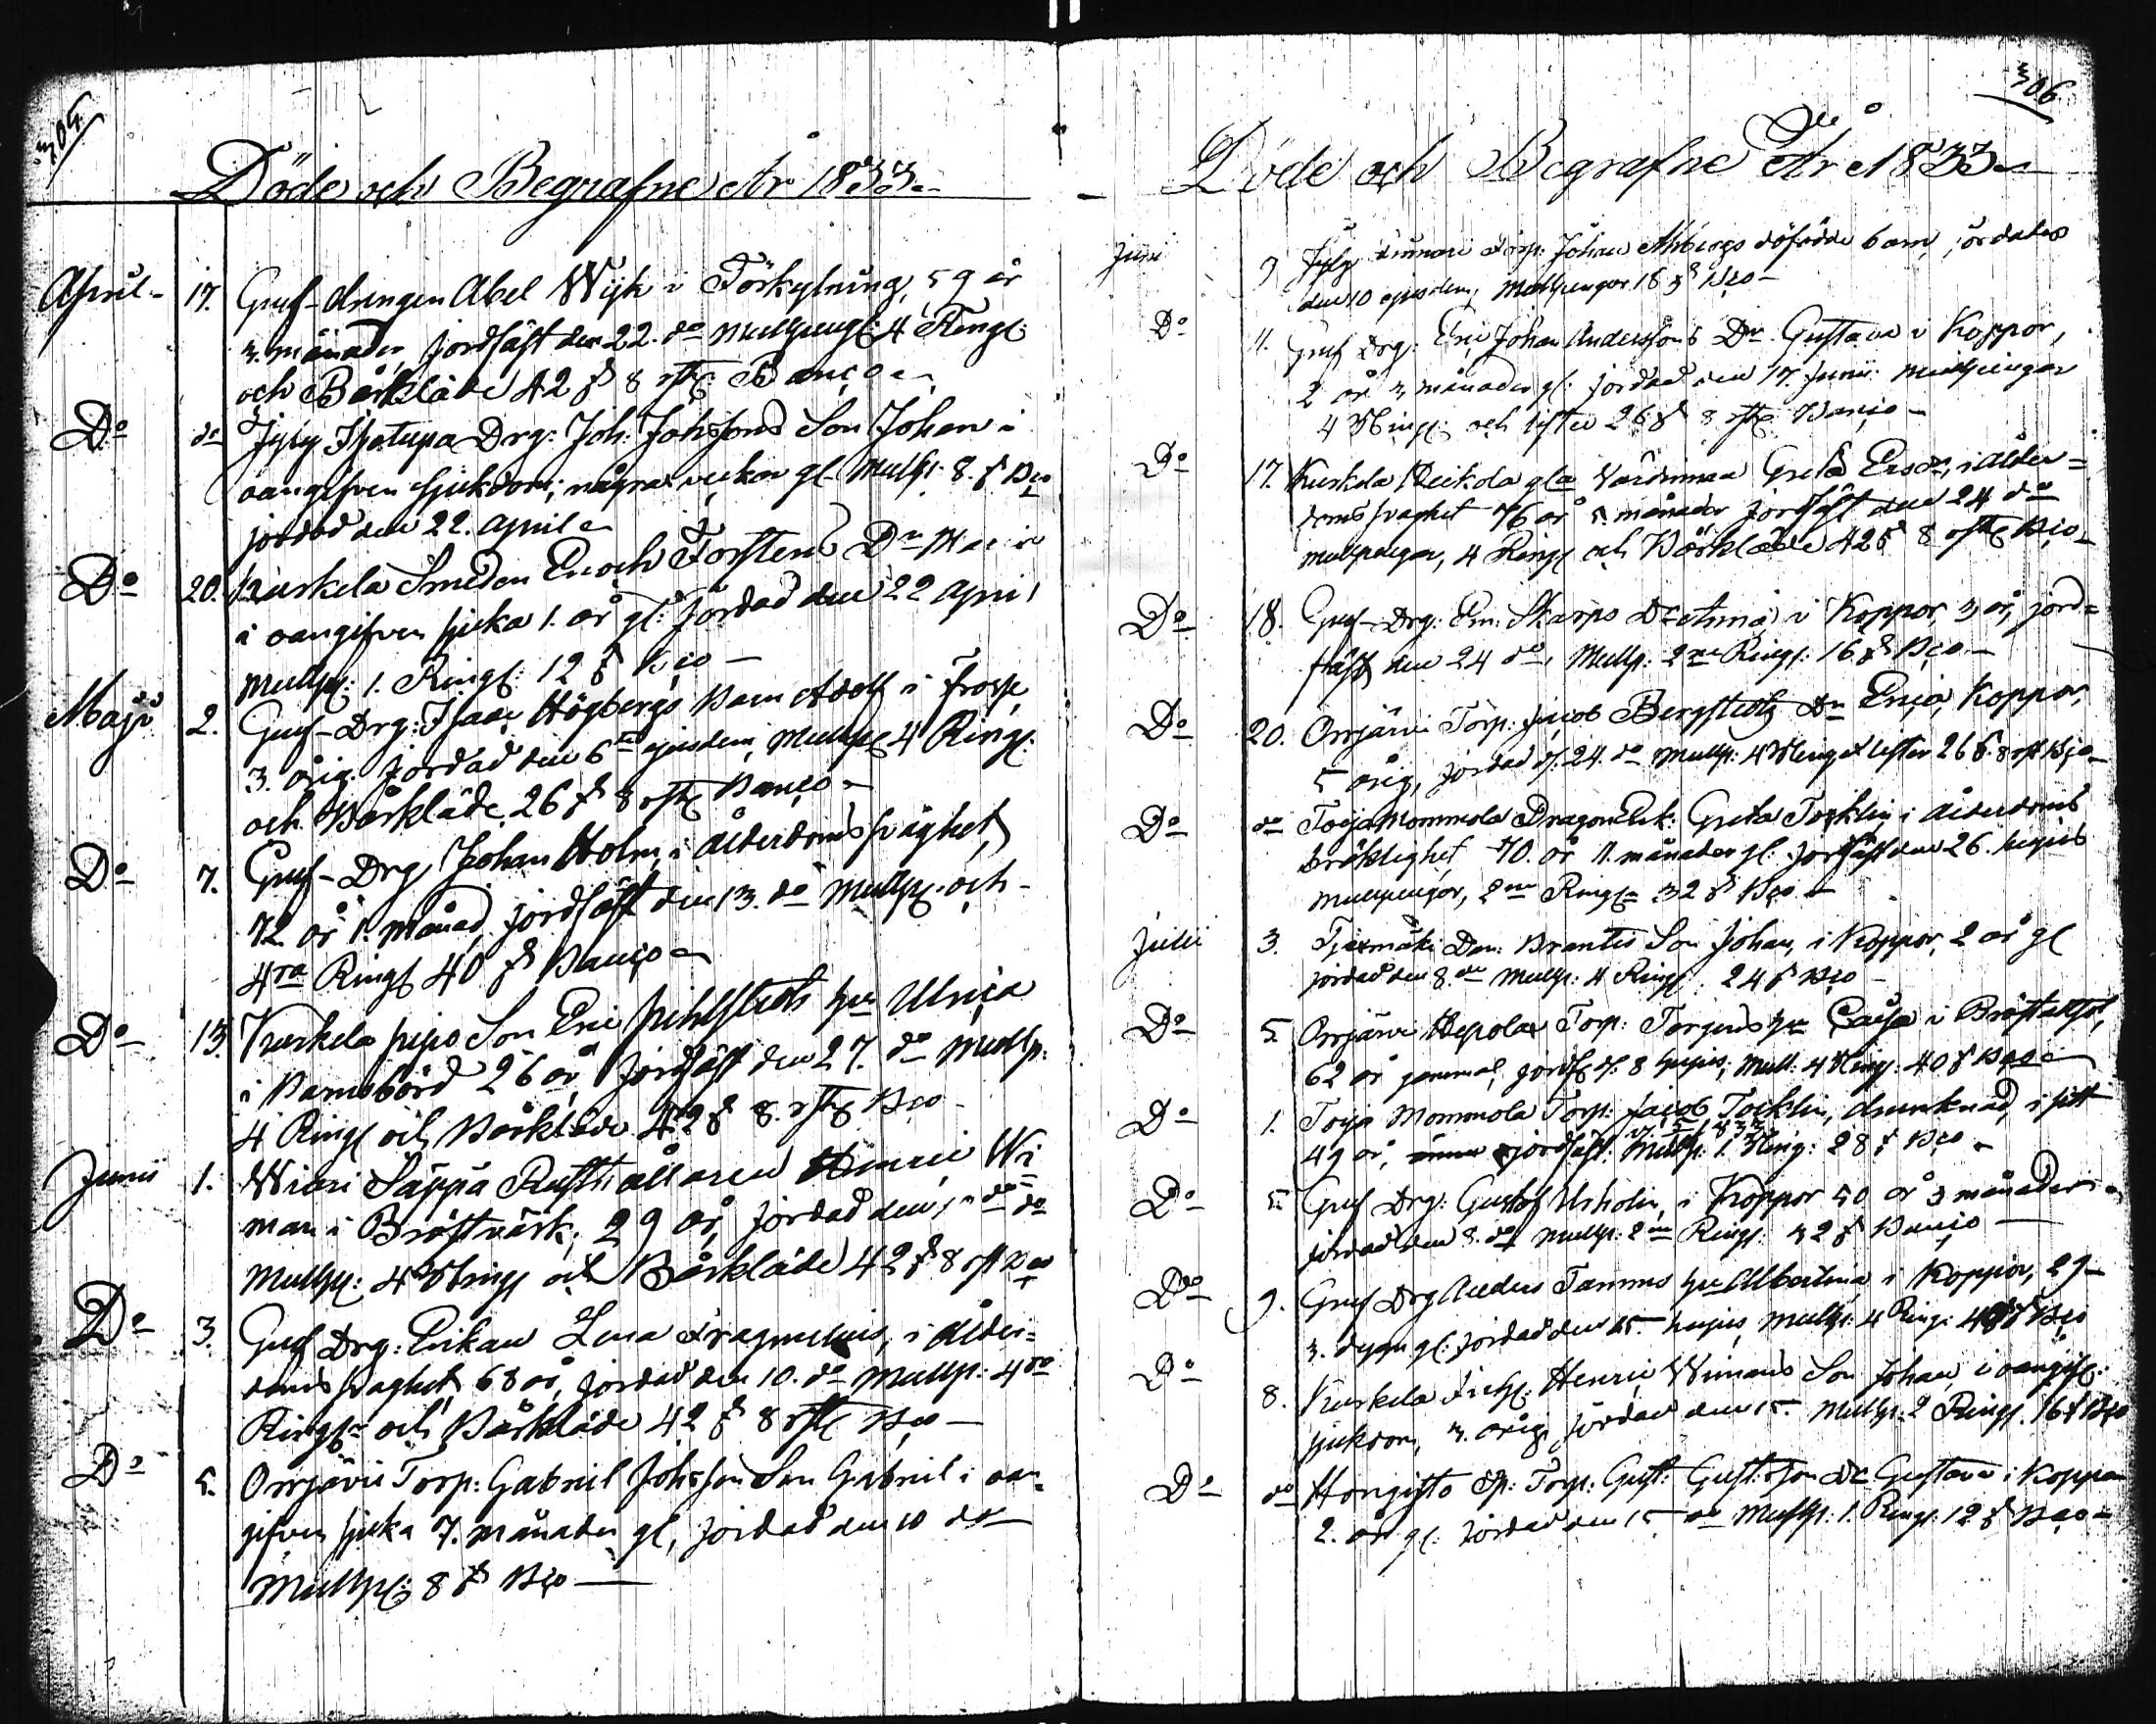 305
Döde och Begrafne År 1833
April 17. Gruf-drengen Abel Wijk i Förkylning, 59 år
3. månader, jordfäst den 22. do Mullpengr: 4 Ringr:
och Bårkläde 42 ß 8 rst: Banco
Do do Drg: Joh: Johssons Son Johan i
oangifven sjukdom; några veckor gl. Mullp: 8. ß Bco
jordad den 22. April
Do 20. Kuskela Smeden Enoch Forstens Dr Maria
i oangifven sjuka 1. år gl: jordad den 22 April
Mullp: 1. Ringn: 12 ß Bco
Maji 2. Gruf-Drg: Isaac Högbergs Barn Adolf i
3. årig. jordad den 6te ejusdem, Mullp: 4 Ringr:
och Bårkläde 26 ß 8 rst: Banco
Do 7. Gruf-Drg Johan Holm, i ålderdoms svaghet,
72 år 1. månad, jordfäst den 13. do Mullp: och
4ra Ringr 40 ß Banco
Do 13. Kuskela Son Eric hu Ulrica
i Barnsbörd 26 år, jordfäst den 27. do Mullp:
4 Ringr och Bårkläde 42 ß 8 rst: Bco
Junii 1. Wiari Säppä Rusthållaren Henric Wi-
man i Bröstvärk; 29 år, jordad den do
Mullp: 4 Ringr och Bårkläde 42 ß 8 rst Bco
Do 3. Gruf Drg: Enkan Lena i ålder-
doms svaghet, 68 år, jordad den 10. do Mullp: 4ra
Ringr och Bårkläde 42 ß 8 rst Bco
Do 5. Orrjärvi Torp: Gabriel Johsson Son Gabriel i oan-
gifven sjuka 7. månader gl, jordad den 10 do
Mullp: 8 ß Bco
306
Döde och Begrafne År 1833
Junii 9 Torp: Johan döfödde barn, jordades
den 10 ejusdem, Mullpengar 18 ß Bco
Do 11. Gruf Drg: Eric Johan Anderssons Dr Gustava i Koppor,
2 år 3 månader gl: jordad den 17. Junii Mullpengar
4 Ringr: och lister 26 ß 8 rst: Banco
Do 17. Kuskela gla Värdinnan Greta Ersdr, i ålder-
doms svaghet 76 år 5. månader jordfäst den 24 do
Mullpengar, 4 Ringr och Bårkläde 42 ß 8 rst: Bco
Do 18. Gruf-Drg: Em: Skarps Dr Anna i Koppor, 3 år, jord-
fäst den 24 do, Mullp: 2ne Ringr: 16 ß Bco
Do 20. Orrjärvi Torp: Jacob Bergstedts Dr Erica, Koppor,
5 årig, jordad d. 24. do Mullp: 4 Ringr lister 26 ß. 8 rst Bco
Do do Toija Mommola Dragon Enk: Greta Tocklin, i ålderdoms
bräcklighet 70. år 11. månader gl. jordfäst den 26. hujus
Mullpengar, 2ne Ringr 32 ß Bco
Julii 3. Dan: Brantis Son Johan, i Koppor, 2 år gl
jordad den 8. do Mullp: 4 Ringr. 24 ß Bco
Do 5. Orrjärvi Hepola Torp: hu Caisa i
62 år gammal, jordf d. 8 hujus, Mull: 4 Ring: 40 ß Bco
Do 1. Toija Mommola Torp: Jacob Tocklin, drunknad, i sitt
49 år, jordfäst. Mullp: 1. Ring: 28 ß Bco
Do 5. Gruf Drg: Gustof i Koppor 50 år 3 månader
jordad den 8. do Mullp: 2ne Ringr. 32 ß Banco
Do 9. Gruf Drg Anders Tammes hu Albertina, i Koppor, 29
3. dygn gl: jordad den 15. hujus, Mullp: 4 Ring: 40 ß Bco
Do 8. Kuskela Henric Wimans Son Johan, i oangif:
sjukdom, 3. årig, jordad den 15. Mullp: 2 Ringr. 16 ß Bco
Do do Hongisto Torp: Gust: Gustsson Dr Gustava i Koppor
2. år gl: jordad den 15 do Mullp: 1. Ringr. 12 ß Bco